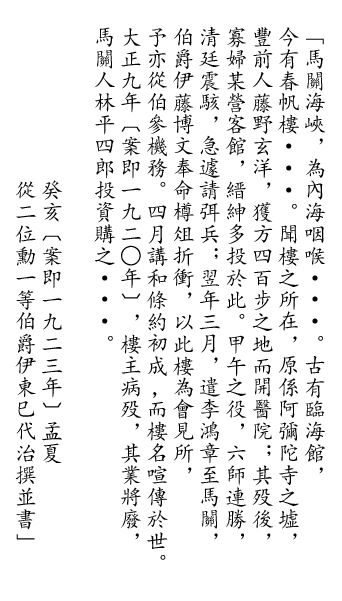 「馬關海峽，為內海咽喉・・・。古有臨海館，
今有春帆樓・・・。聞樓之所在，原係阿彌陀寺之墟，
豐前人藤野玄洋，獲方四百步之地而開醫院；其歿後，
寡婦某營客館，縉紳多投於此。甲午之役，六師連勝，
清廷震駭，急遽請弭兵；翌年三月，遣李鴻章至馬關，
伯爵伊藤博文奉命樽俎折衝，以此樓為會見所，
予亦從伯參機務。四月講和條約初成，而樓名喧傳於世。
大正九年〔案即一九二〇年〕，樓主病歿，其業將廢，
馬關人林平四郎投資購之・・・。
癸亥〔案即一九二三年〕孟夏
從二位勳一等伯爵伊東巳代治撰並書」